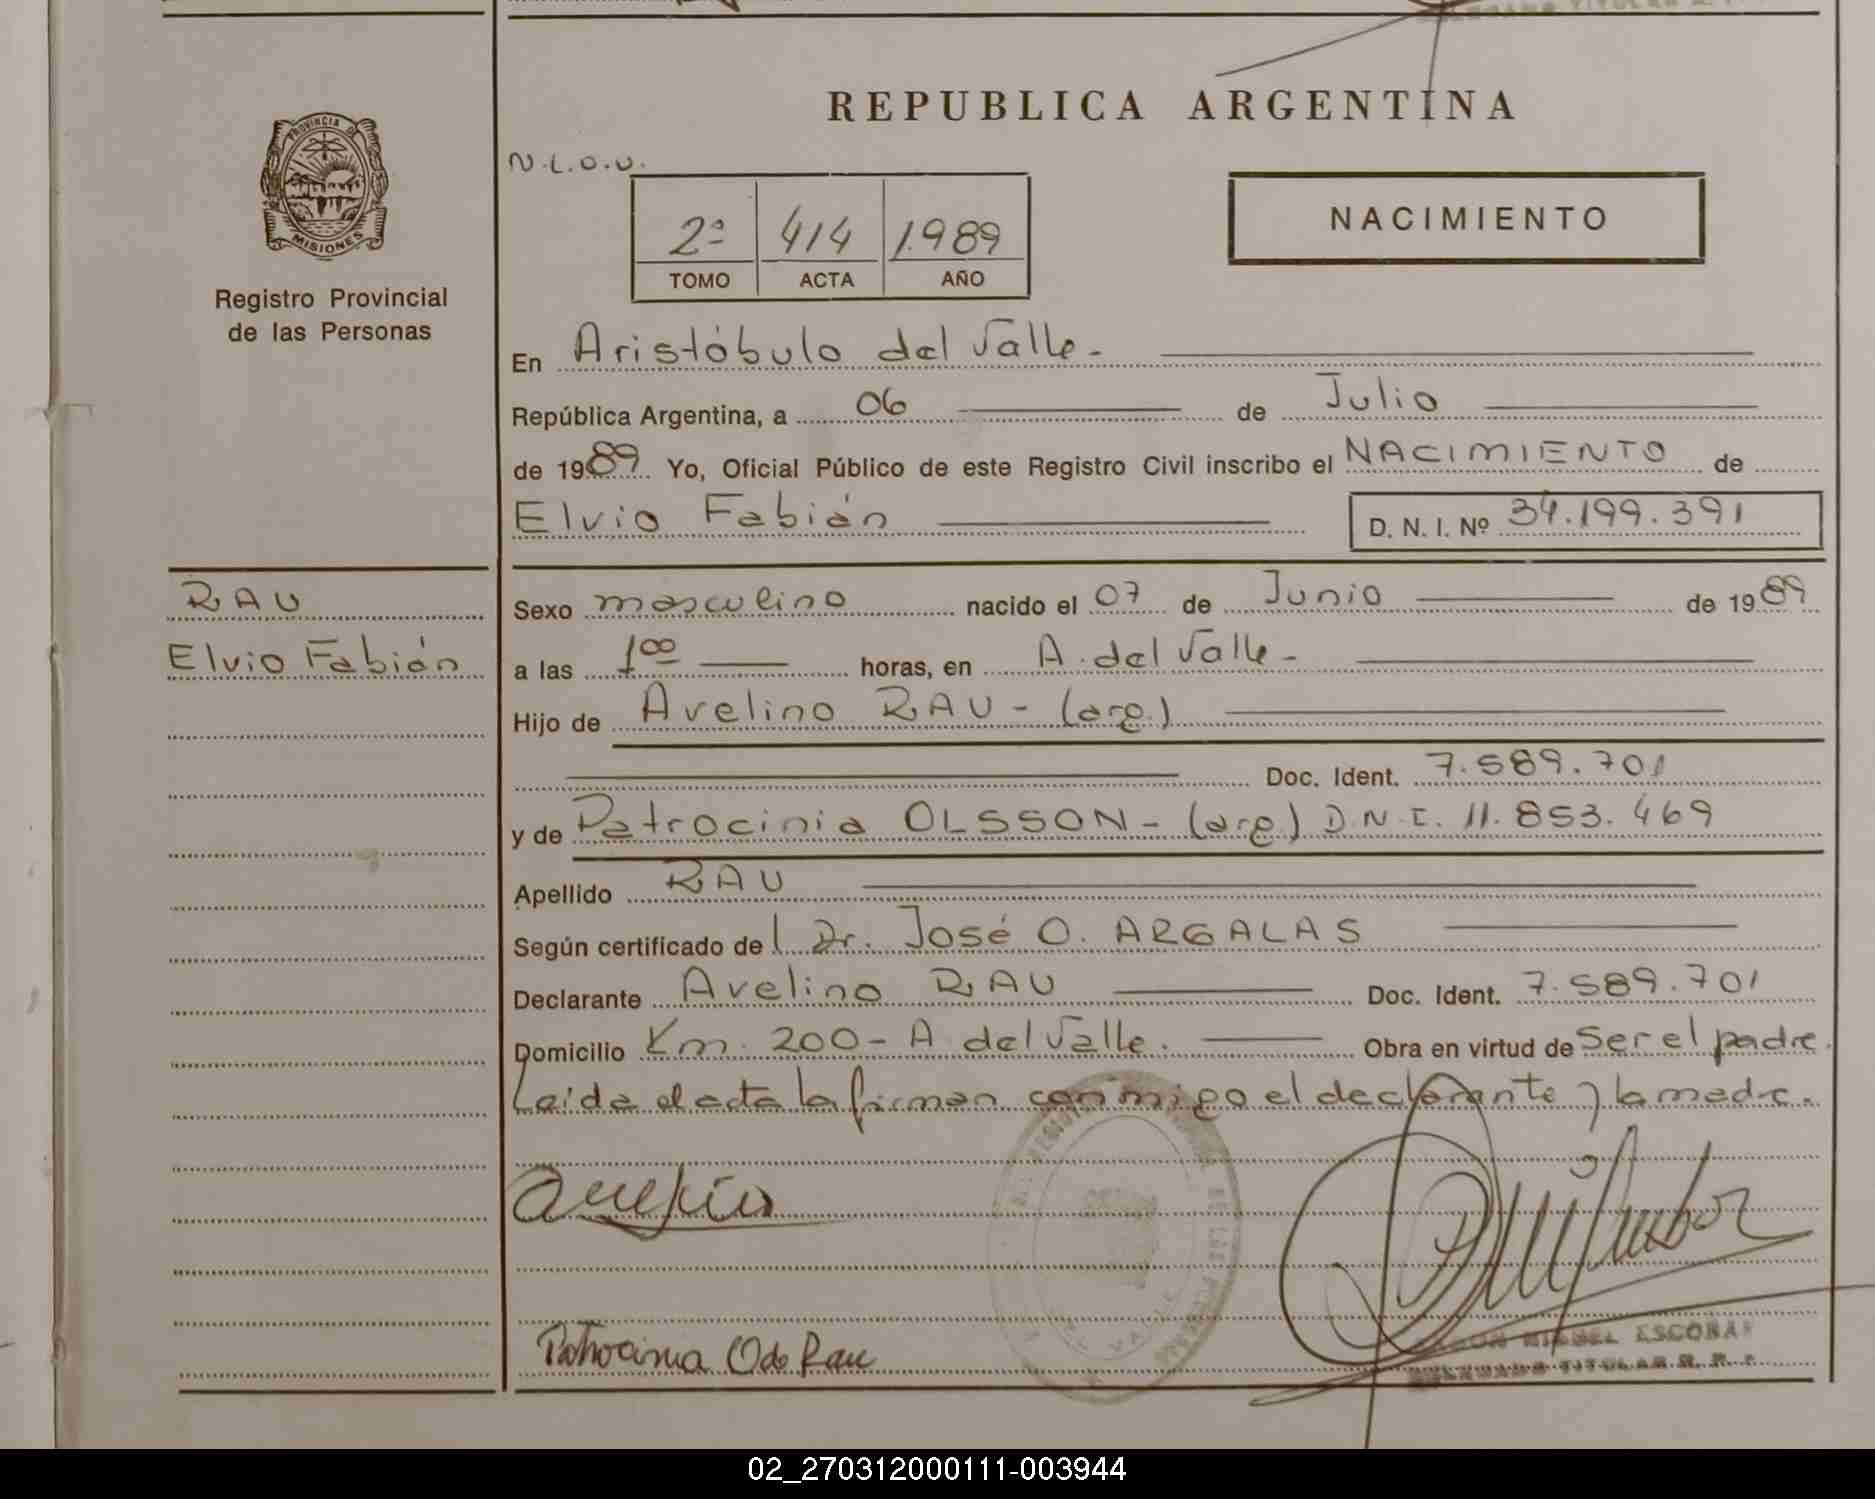 REPUBLICA ARGENTINA
PROVINCIA DE
MISIONES
Registro Provincial
de las Personas
N.L.O.U.
2º 414 1989
TOMO ACTA AÑO
NACIMIENTO
En Aristóbulo del Valle.-
República Argentina, a 06 de Julio
de 1989 Yo, Oficial Público de este Registro Civil inscribo el NACIMIENTO de
Elvio Fabián D. N. I. Nº 34.199.391
RAU
Elvio Fabián
Sexo masculino nacido el 07 de Junio de 1989
a las 1 00 horas, en A. del Valle-
Hijo de Avelino RAU - (arg.)
Doc. Ident. 7.589.701
y de Patrocinia OLSSON - (arg) D.N.I. 11.853.469
Apellido RAU
Según certificado del Dr. José O. ARGALAS
Declarante Avelino RAU Doc. Ident. 7.589.701
Domicilio Km. 200 - A del Valle. Obra en virtud de ser el padre.
Leida el acta la firman conmigo el declarante y la madre.
Patrocinia O de Rau
MIGUEL ESCOBAR
TITULAR R. P.
02_270312000111-003944